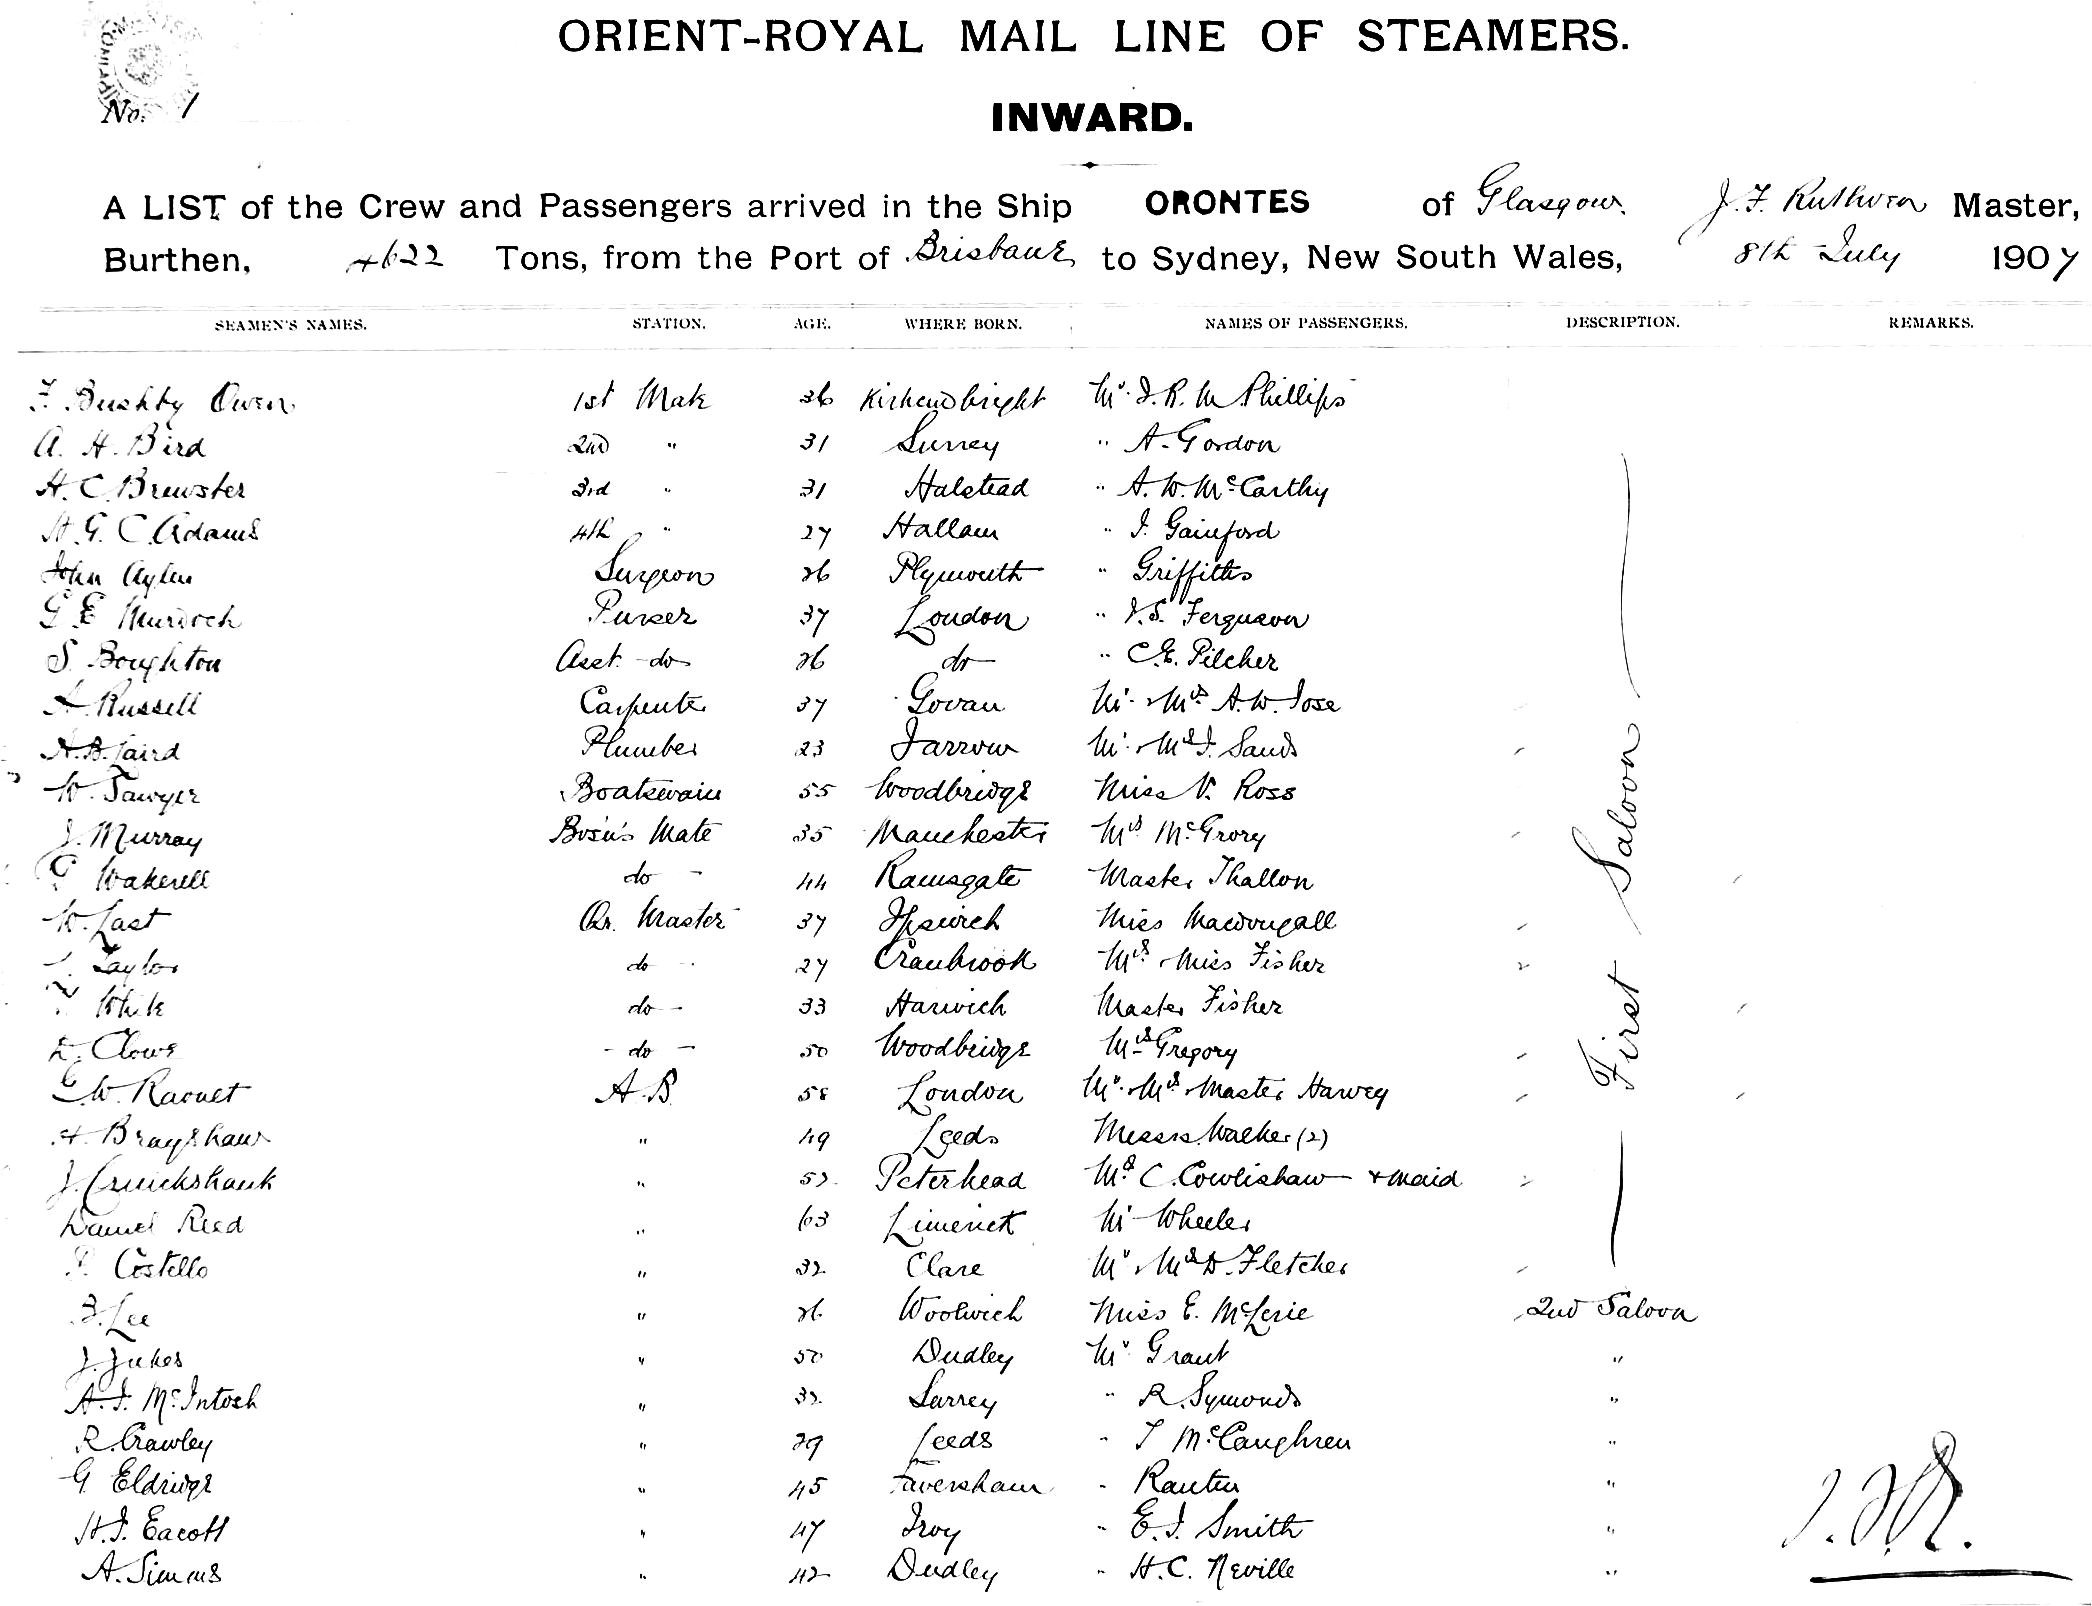 No. 1
ORIENT-ROYAL MAIL LINE OF STEAMERS.
INWARD.
A LIST of the Crew and Passengers arrived in the Ship ORONTES of Glasgow. J. F. Ruthven Master,
Burthen, 4622 Tons, from the Port of Brisbane to Sydney, New South Wales, 8th July 1907
SEAMEN'S NAMES. STATION. AGE. WHERE BORN. NAMES OF PASSENGERS. DESCRIPTION. REMARKS.
F. Bushby Owen 1st Mate 36 Kirkcudbright Mr. J. R. M. Phillips
A. H. Bird 2nd " 31 Surrey " A. Gordon
H. C. Brewster 3rd " 31 Halstead " A. W. McCarthy
H. G. C. Adams 4th " 27 Hallam " J. Gainford
John Aylen Surgeon 26 Plymouth " Griffiths
G E Murdoch Purser 37 London " J. S. Ferguson
S. Boughton Asst. do 26 do " C. E. Pilcher
A. Russell Carpenter 37 Govan Mr. Mrs A. W. Jose
A. B. Laird Plumber 23 Jarrow Mr. Mrs J. Sands
W. Sawyer Boatswain 55 Woodbridge Miss V. Ross
J. Murray Bosn's Mate 35 Manchester Mrs McGrory
Wakerell do 44 Ramsgate Master Thallon
W. Last Qr. Master 37 Ipswich Miss Macdougall
Taylor do 27 Cranbrook Mrs Miss Fisher
White do 33 Harwich Master Fisher
Clows do 50 Woodbridge Mrs Gregory
W. Barnet A.B. 58 London Mr. Mrs Master Harvey
H. Brayshaw " 49 Leeds Messrs. Walker (2)
J. Cruickshank " 52 Peterhead Mrs C. Cowlishaw + maid
Daniel Reed " 63 Limerick Mr Wheeler
P. Costello " 32 Clare Mr Mrs D. Fletcher
First Saloon
Lee " 26 Woolwich Miss E. McLerie 2nd Saloon
J. Jukes " 50 Dudley Mr Grant "
A. J. McIntosh " 32 Surrey " R. Symonds "
R. Crawley " 29 Leeds " T McCaughren "
G Eldridge " 45 Faversham "
H. J. Eacott " 47 Troy " E. J. Smith "
A. Simms " 42 Dudley " H. C. Neville "
J. F. R.